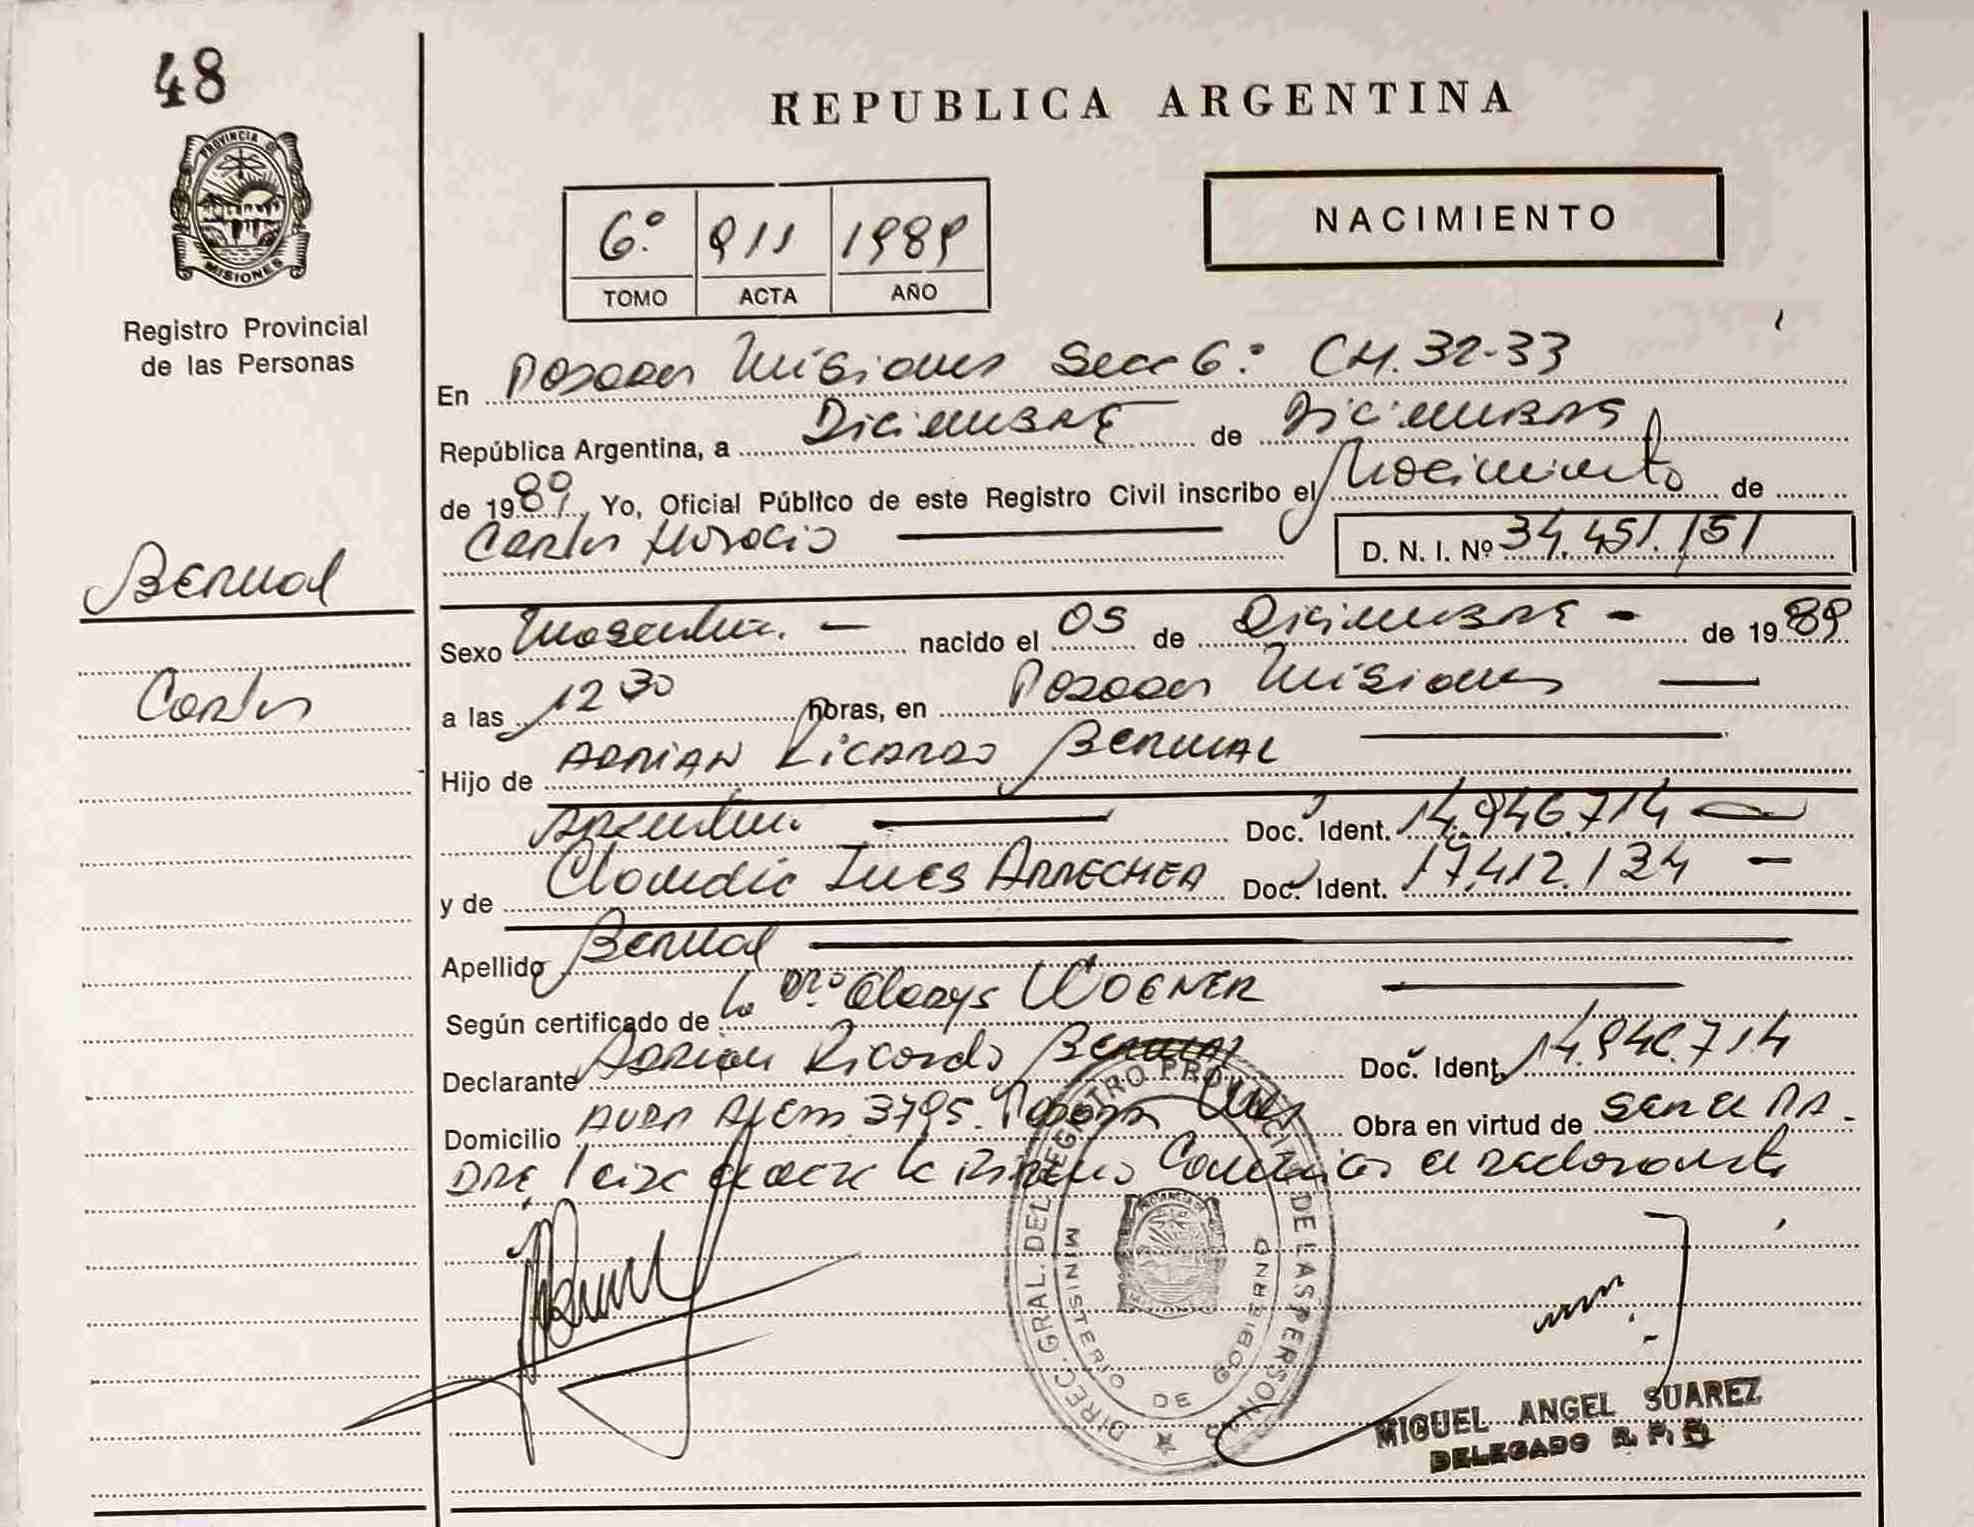 48
PROVINCIA DE
MISIONES
Registro Provincial
de las Personas
Bernal
Carlos
REPUBLICA ARGENTINA
6º 911 1989
TOMO ACTA AÑO
NACIMIENTO
En Posadas Misiones Secc 6º CH. 32-33
República Argentina, a Diciembre de Diciembre
de 1989, Yo, Oficial Público de este Registro Civil inscribo el Nacimiento de
Carlos Horacio D. N. I. Nº 34.451.151
Sexo Masculino. nacido el 05 de Diciembre de 1989
a las 12 30 horas, en Posadas Misiones
Hijo de Adrian Ricardo Bernal
Argentino Doc. Ident. 14.946.714
y de Claudia Ines Arrechea Doc. Ident. 17.412.134
Apellido Bernal
Según certificado de la Dra. Gladys Wagner
Declarante Adrian Ricardo Bernal Doc. Ident. 14.946.714
Domicilio Avda Alem 3795. Posadas Obra en virtud de ser el pa-
dre el declarante
DIREC. GRAL. DEL REGISTRO PROVINCIAL DE LAS PERSONAS
MINISTERIO DE GOBIERNO
MIGUEL ANGEL SUAREZ
DELEGADO R. P. P.